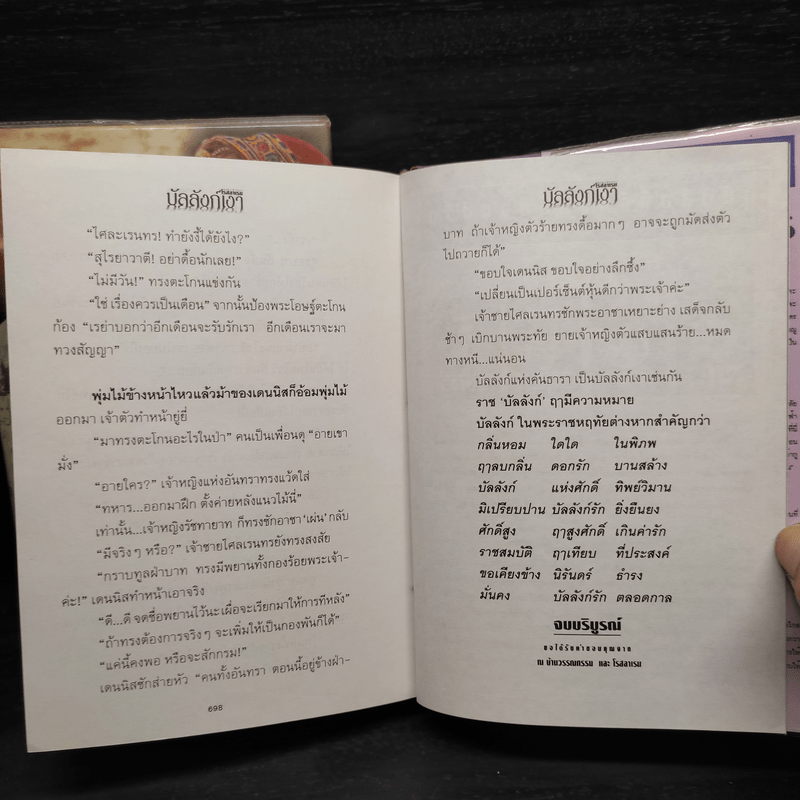 โรสลาเรน
บัลลังก์เงา
“ไศละเรนทร! ทำยังงี้ได้ยังไง?”
“สุไรยาวาตี! อย่าดื้อนักเลย!”
“ไม่มีวัน!” ทรงตะโกนแข่งกัน
“ใช่ เรื่องควรเป็นเดือน” จากนั้นป้องพระโอษฐ์ตะโกน
ก้อง “เรย่าบอกว่าอีกเดือนจะรับรักเรา อีกเดือนเราจะมา
ทวงสัญญา”
พุ่มไม้ข้างหน้าไหวแล้วม้าของเดนนิสก็อ้อมพุ่มไม้
ออกมา เจ้าตัวทำหน้ายู่ยี่
“มาทรงตะโกนอะไรในป่า” คนเป็นเพื่อนดุ “อายเขา
มั่ง”
“อายใคร?” เจ้าหญิงแห่งอันทราทรงแว้ดใส่
“ทหาร...ออกมาฝึก ตั้งค่ายหลังแนวไม้นี่”
เท่านั้น...เจ้าหญิงรัชทายาท ก็ทรงชักอาชา ‘เผ่น’ กลับ
“มีจริงๆ หรือ?” เจ้าชายไศลเรนทรยังทรงสงสัย
“กราบทูลฝ่าบาท ทรงมีพยานทั้งกองร้อยพระเจ้า-
ค่ะ!” เดนนิสทำหน้าเอาจริง
“ดี...ดี จดชื่อพยานไว้นะเผื่อจะเรียกมาให้การทีหลัง”
“ถ้าทรงต้องการจริงๆ จะเพิ่มให้เป็นกองพันก็ได้”
“แค่นี้คงพอ หรือจะสักกรม!”
เดนนิสซักส่ายหัว “คนทั้งอันทรา ตอนนี้อยู่ข้างฝ่า-
698
โรสลาเรน
บัลลังก์เงา
บาท ถ้าเจ้าหญิงตัวร้ายทรงดื้อมากๆ อาจจะถูกมัดส่งตัว
ไปถวายก็ได้”
“ขอบใจเดนนิส ขอบใจอย่างลึกซึ้ง”
“เปลี่ยนเป็นเปอร์เซ็นต์หุ้นดีกว่าพระเจ้าค่ะ”
เจ้าชายไศลเรนทรชักพระอาชาเหยาะย่าง เสด็จกลับ
ช้าๆ เบิกบานพระทัย ยายเจ้าหญิงตัวแสบแสนร้าย...หมด
ทางหนี...แน่นอน
บัลลังก์แห่งคันธารา เป็นบัลลังก์เงาเช่นกัน
ราช ‘บัลลังก์’ ฤๅมีความหมาย
บัลลังก์ ในพระราชหฤทัยต่างหากสำคัญกว่า
กลิ่นหอม ใดใด ในพิภพ
ฤๅลบกลิ่น ดอกรัก บานสล้าง
บัลลังก์ แห่งศักดิ์ ทิพย์วิมาน
มิเปรียบปาน บัลลังก์รัก ยิ่งยืนยง
ศักดิ์สูง ฤๅสูงศักดิ์ เกินค่ารัก
ราชสมบัติ ฤๅเทียบ ที่ประสงค์
ขอเคียงข้าง นิรันดร์ ธำรง
มั่นคง บัลลังก์รัก ตลอดกาล
จบบริบูรณ์
ขอได้รับคำขอบคุณจาก
ณ บ้านวรรณกรรม และ โรสลาเรน